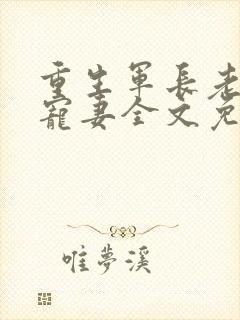 重生軍長老
寵妻全文免
唯夢溪